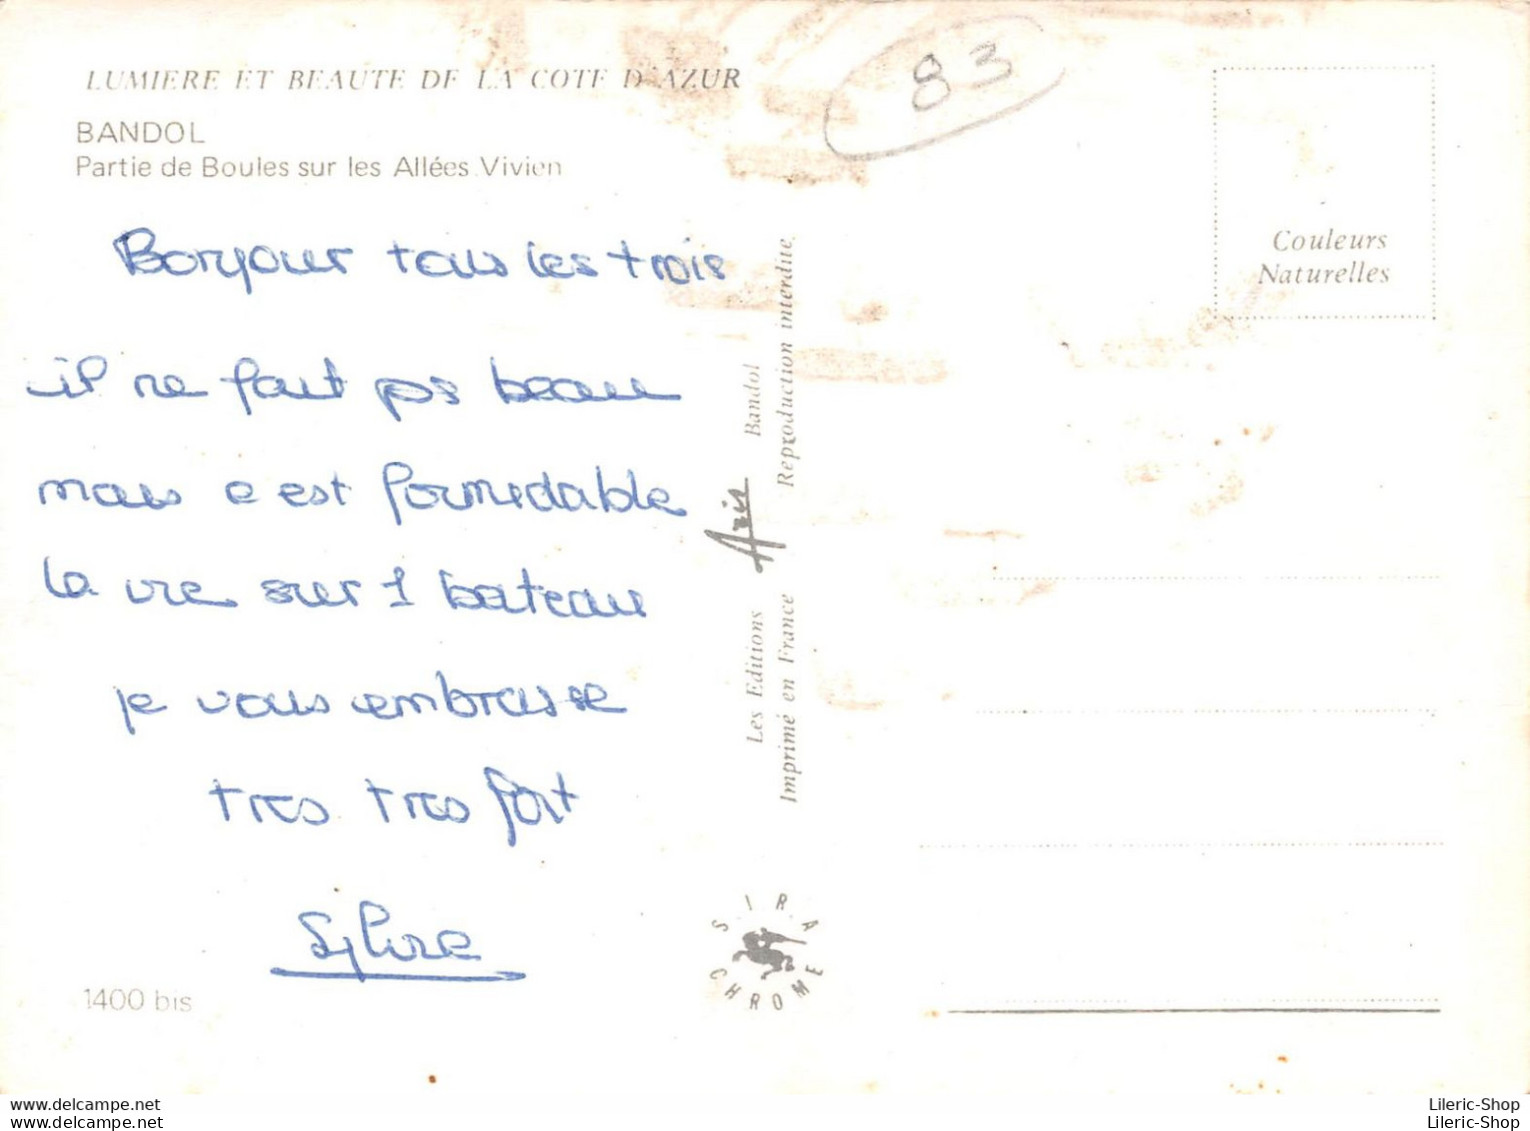 LUMIERE ET BEAUTE DE LA COTE D'AZUR
BANDOL
Partie de Boules sur les Allées Vivien
83
Couleurs
Naturelles
Bonjour tous les trois
il ne fait pas beau
mais c est formidable
la vie sur 1 bateau
je vous embrasse
tres tres fort
Sylvie
1400 bis
Les Editions Aris Bandol
Imprimé en France Reproduction interdite
SIRA
CHROME
delcampe.net
Lileric-Shop
delcampe.net
Lileric-Shop